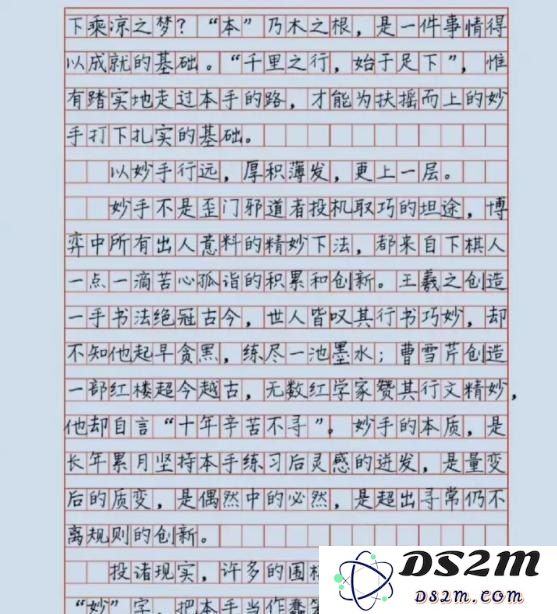 下乘凉之梦？“本”乃木之根，是一件事情得
以成就的基础。“千里之行，始于足下”，惟
有踏实地走过本手的路，才能为扶摇而上的妙
手打下扎实的基础。
以妙手行远，厚积薄发，更上一层。
妙手不是歪门邪道者投机取巧的坦途，博
弈中所有出人意料的精妙下法，都来自下棋人
一点一滴苦心孤诣的积累和创新。王羲之创造
一手书法绝冠古今，世人皆叹其行书巧妙，却
不知他起早贪黑，练尽一池墨水；曹雪芹创造
一部红楼超今越古，无数红学家赞其行文精妙，
他却自言“十年辛苦不寻”。妙手的本质，是
长年累月坚持本手练习后灵感的迸发，是量变
后的质变，是偶然中的必然，是超出寻常仍不
离规则的创新。
投诸现实，许多的围
“妙”字，把本手当作
DS2M
DS2m.com